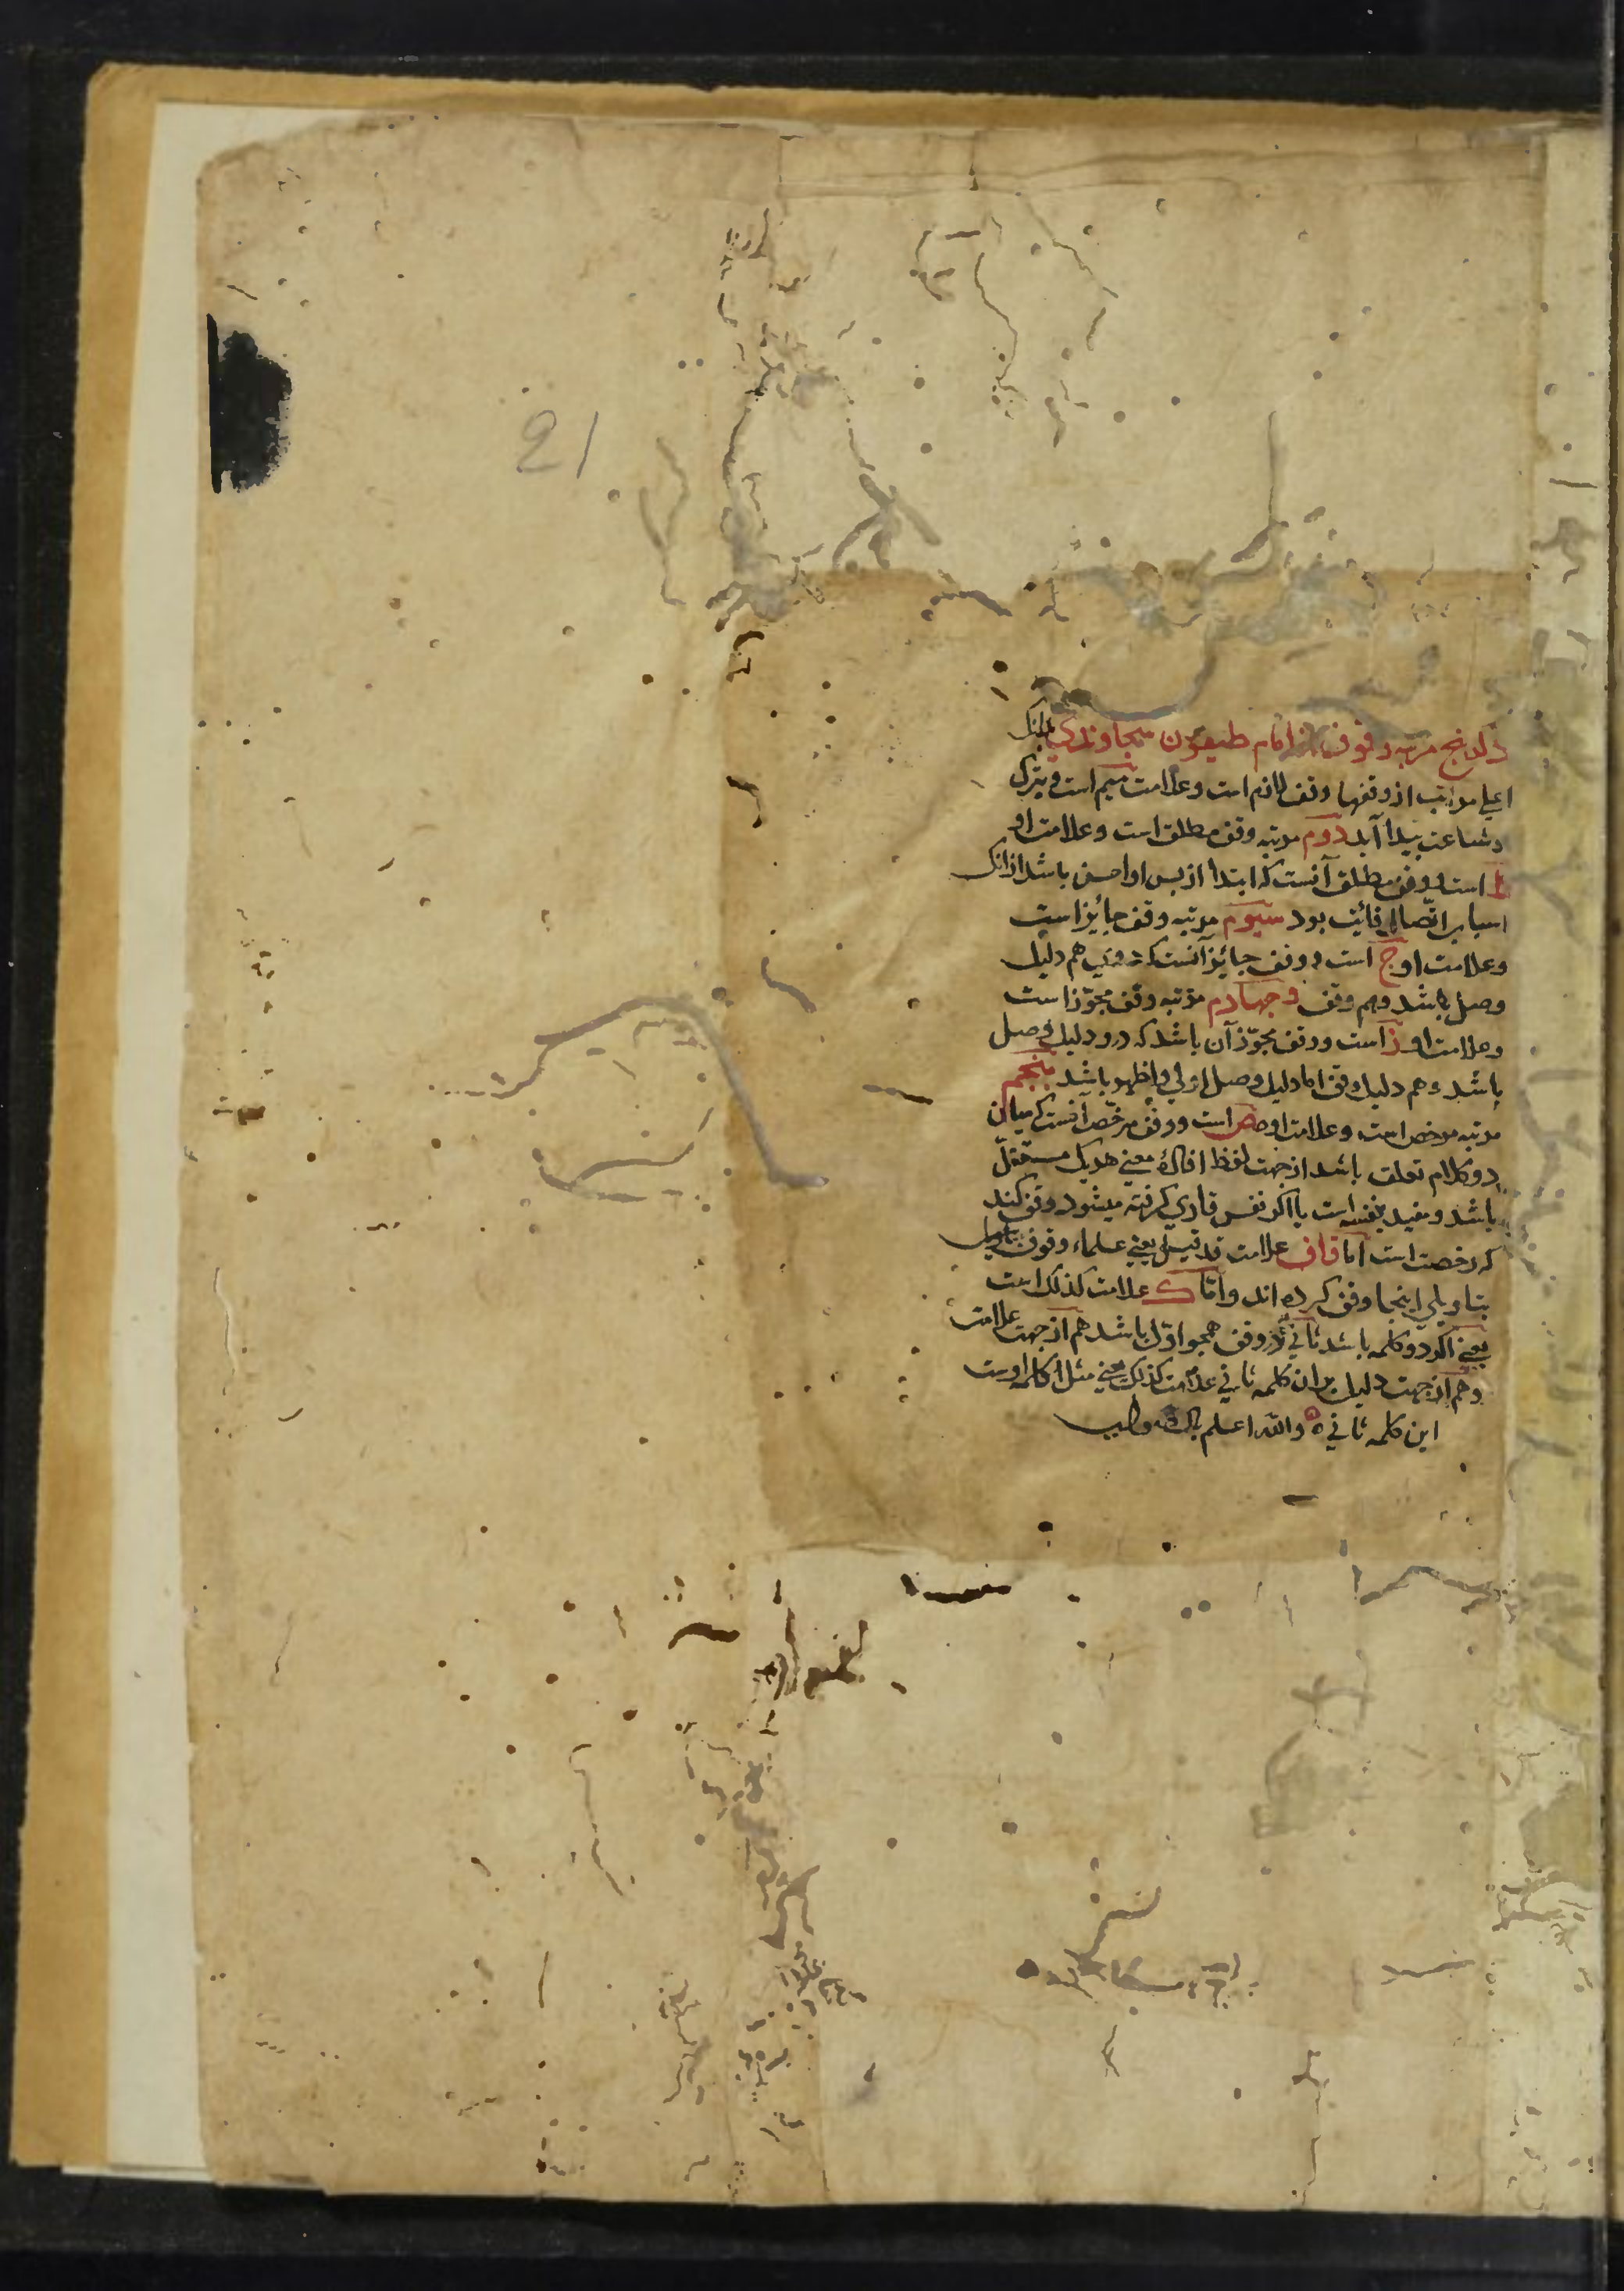 21
ذکر پنج مرتبه وقوف از امام طیفور سجاوندی بدانک
اعلی مراتب از وقفها وقف لازم است و علامت میم است و بترک
شناعت پیدا آید دوم مرتبه وقف مطلق است و علامت او
ط است و وقف مطلق آنست که ابتدا از پس او احسن باشد از انک
اسباب اتّصال فائت بود سیوم مرتبه وقف جایز است
و علامت او ج است و وقف جایز آنست که هم دلیل
وصل باشد و هم وقف و چهارم مرتبه وقف مجوّز است
و علامت او ز است و وقف مجوّز آن باشد که درو دلیل وصل
باشد و هم دلیل وقف اما دلیل وصل اولی و اظهر باشد پنجم
مرتبه مرخص است و علامت او ص است و وقف مرخّص آنست که میان
دو کلام تعلق باشد از جهت لفظ معنی هر یک مستقلّ
باشد و مفید بنفسه است یا اگر نفس قاری گرفته میشود وقف کند
که رخصت است اما قاف علامت قد قیل یعنی علماء وقوف
بتاویلی اینجا وقف کرده اند و اما ک علامت کذلک است
یعنی اگر دو کلمه باشد ثانی در وقف همچو اوّل باشد هم از جهت علامت
و هم از جهت دلیل بران کلمه ثانی علامت کذلک یعنی مثل کلمه اوست
این کلمه ثانی ه والله اعلم